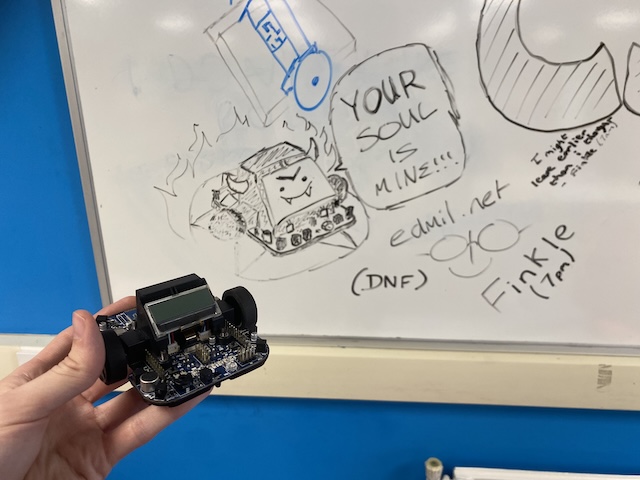 YOUR
SOUL
IS
MINE!!!
edmil.net
(DNF)
Finkle
(7pm)
I might
leave earlier
than i thought
- Finkle